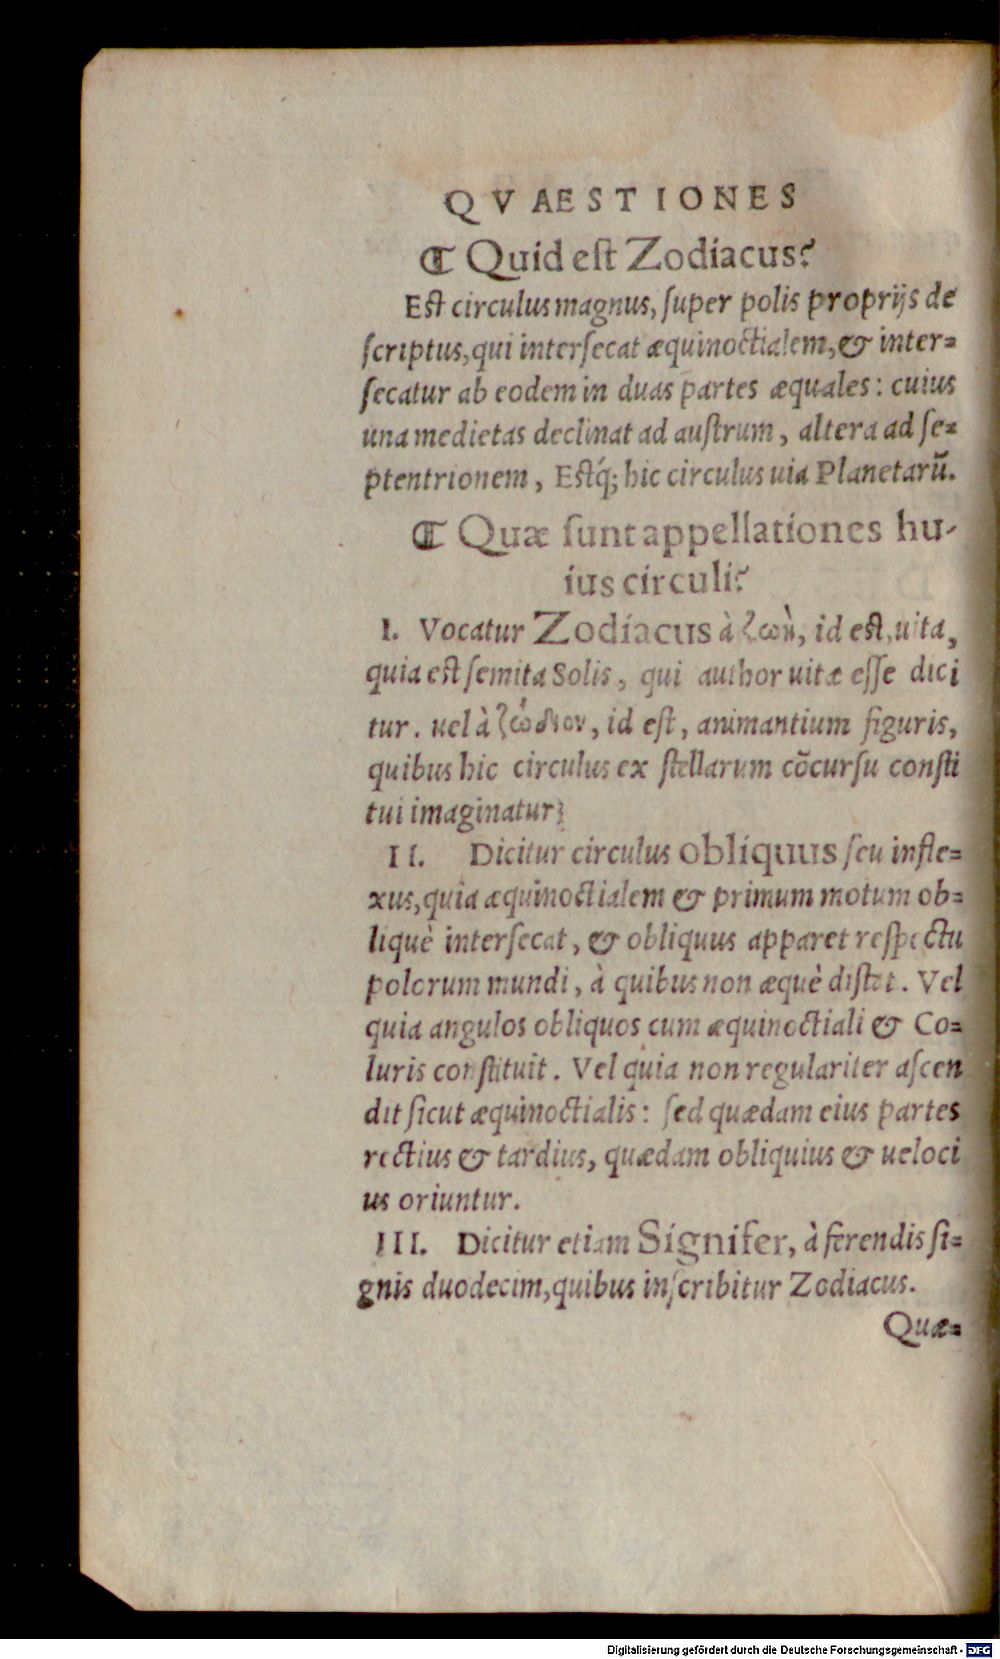 QVAESTIONES
¶ Quid est Zodiacus?
Est circulus magnus, super polis proprijs de
scriptus, qui intersecat æquinoctialem, & inter-
secatur ab eodem in duas partes æquales: cuius
una medietas declinat ad austrum, altera ad se-
ptentrionem, Estq́; hic circulus uia Planetarū.
¶ Quæ sunt appellationes hu-
ius circuli?
I. Vocatur Zodiacus à ζωὴ, id est, uita,
quia est semita Solis, qui author uitæ esse dici
tur. uel à ζώδιον, id est, animantium figuris,
quibus hic circulus ex stellarum cōcursu consti
tui imaginatur;
II. Dicitur circulus obliquus seu infle-
xus, quia æquinoctialem & primum motum ob-
liquè intersecat, & obliquus apparet respectu
polorum mundi, à quibus non æquè distat. Vel
quia angulos obliquos cum æquinoctiali & Co-
luris constituit. Vel quia non regulariter ascen
dit sicut æquinoctialis: sed quædam eius partes
rectius & tardius, quædam obliquius & ueloci
us oriuntur.
III. Dicitur etiam Signifer, à ferendis si-
gnis duodecim, quibus inscribitur Zodiacus.
Quæ-
Digitalisierung gefördert durch die Deutsche Forschungsgemeinschaft - DFG